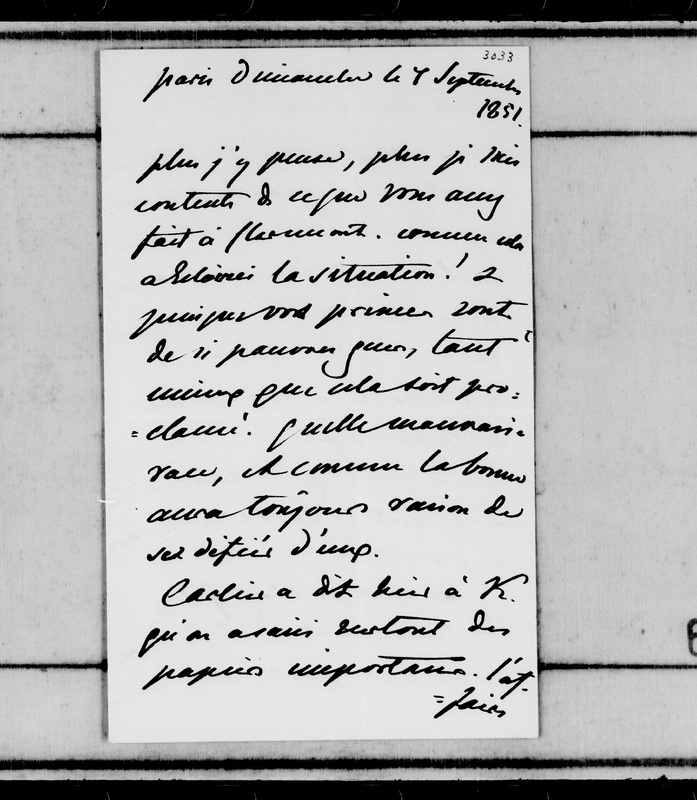 3033
paris Dimanche le 7 Septembre
1851.
plus j'y pense, plus je suis
contente de ce que vous avez
fait à Claremont. comme cela
a éclairci la situation ! &
puisque vos princes sont
de si pauvres gens, tant
mieux que cela soit pro=
=clamé. quelle mauvaise
race, et comme la bonne
aura toujours raison de
se défier d'eux.
Carlier a dit hier à K.
qu'on a saisi surtout des
papiers importans. l'af-
=faire